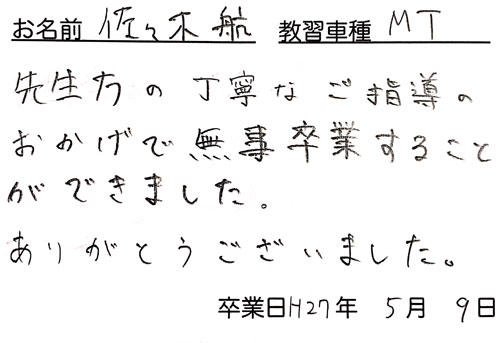 お名前 佐々木航 教習車種 MT
先生方の丁寧なご指導の
おかげで無事卒業すること
ができました。
ありがとうございました。
卒業日H27年 5月 9日